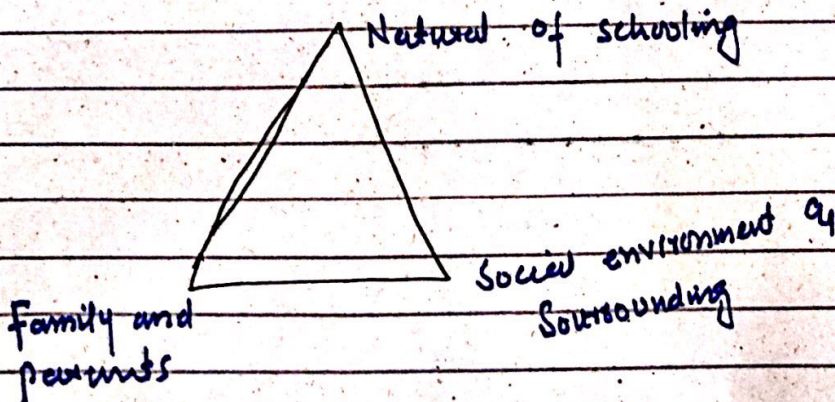 Natural of schooling
Social environment
Sourrounding
Family and
parents